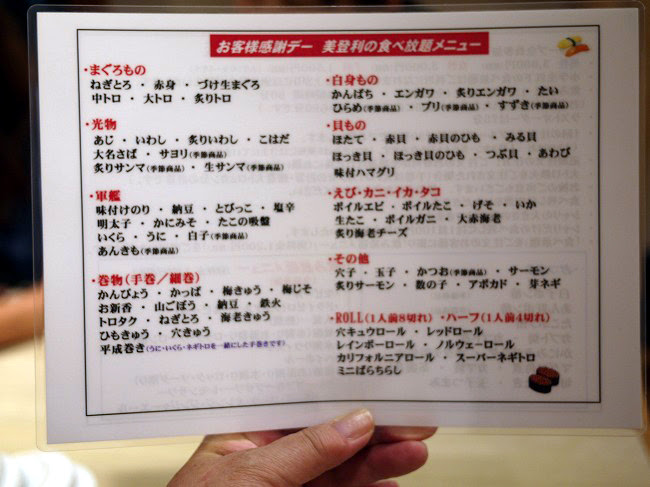 お客様感謝デー 美登利の食べ放題メニュー
・まぐろもの
ねぎとろ ・ 赤身 ・ づけ生まぐろ
中トロ ・ 大トロ ・ 炙りトロ
・光物
あじ ・ いわし ・ 炙りいわし ・ こはだ
大名さば ・ サヨリ(季節商品)
炙りサンマ(季節商品) ・ 生サンマ(季節商品)
・軍艦
味付けのり ・ 納豆 ・ とびっこ ・ 塩辛
明太子 ・ かにみそ ・ たこの吸盤
いくら ・ うに ・ 白子(季節商品)
あんきも(季節商品)
・巻物(手巻/細巻)
かんぴょう ・ かっぱ ・ 梅きゅう ・ 梅じそ
お新香 ・ 山ごぼう ・ 納豆 ・ 鉄火
トロタク ・ ねぎとろ ・ 海老きゅう
ひもきゅう ・ 穴きゅう
平成巻き(うに・いくら・ネギトロを一緒にした手巻きです)
・白身もの
かんぱち ・ エンガワ ・ 炙りエンガワ ・ たい
ひらめ(季節商品) ・ ブリ(季節商品) ・ すずき(季節商品)
・貝もの
ほたて ・ 赤貝 ・ 赤貝のひも ・ みる貝
ほっき貝 ・ ほっき貝のひも ・ つぶ貝 ・ あわび
味付ハマグリ
・えび・カニ・イカ・タコ
ボイルエビ ・ ボイルたこ ・ げそ ・ いか
生たこ ・ ボイルガニ ・ 大赤海老
炙り海老チーズ
・その他
穴子 ・ 玉子 ・ かつお(季節商品) ・ サーモン
炙りサーモン ・ 数の子 ・ アボカド ・ 芽ネギ
・ROLL(1人前8切れ) ・ハーフ(1人前4切れ)
穴キュウロール ・ レッドロール
レインボーロール ・ ノルウェーロール
カリフォルニアロール ・ スーパーネギトロ
ミニばらちらし